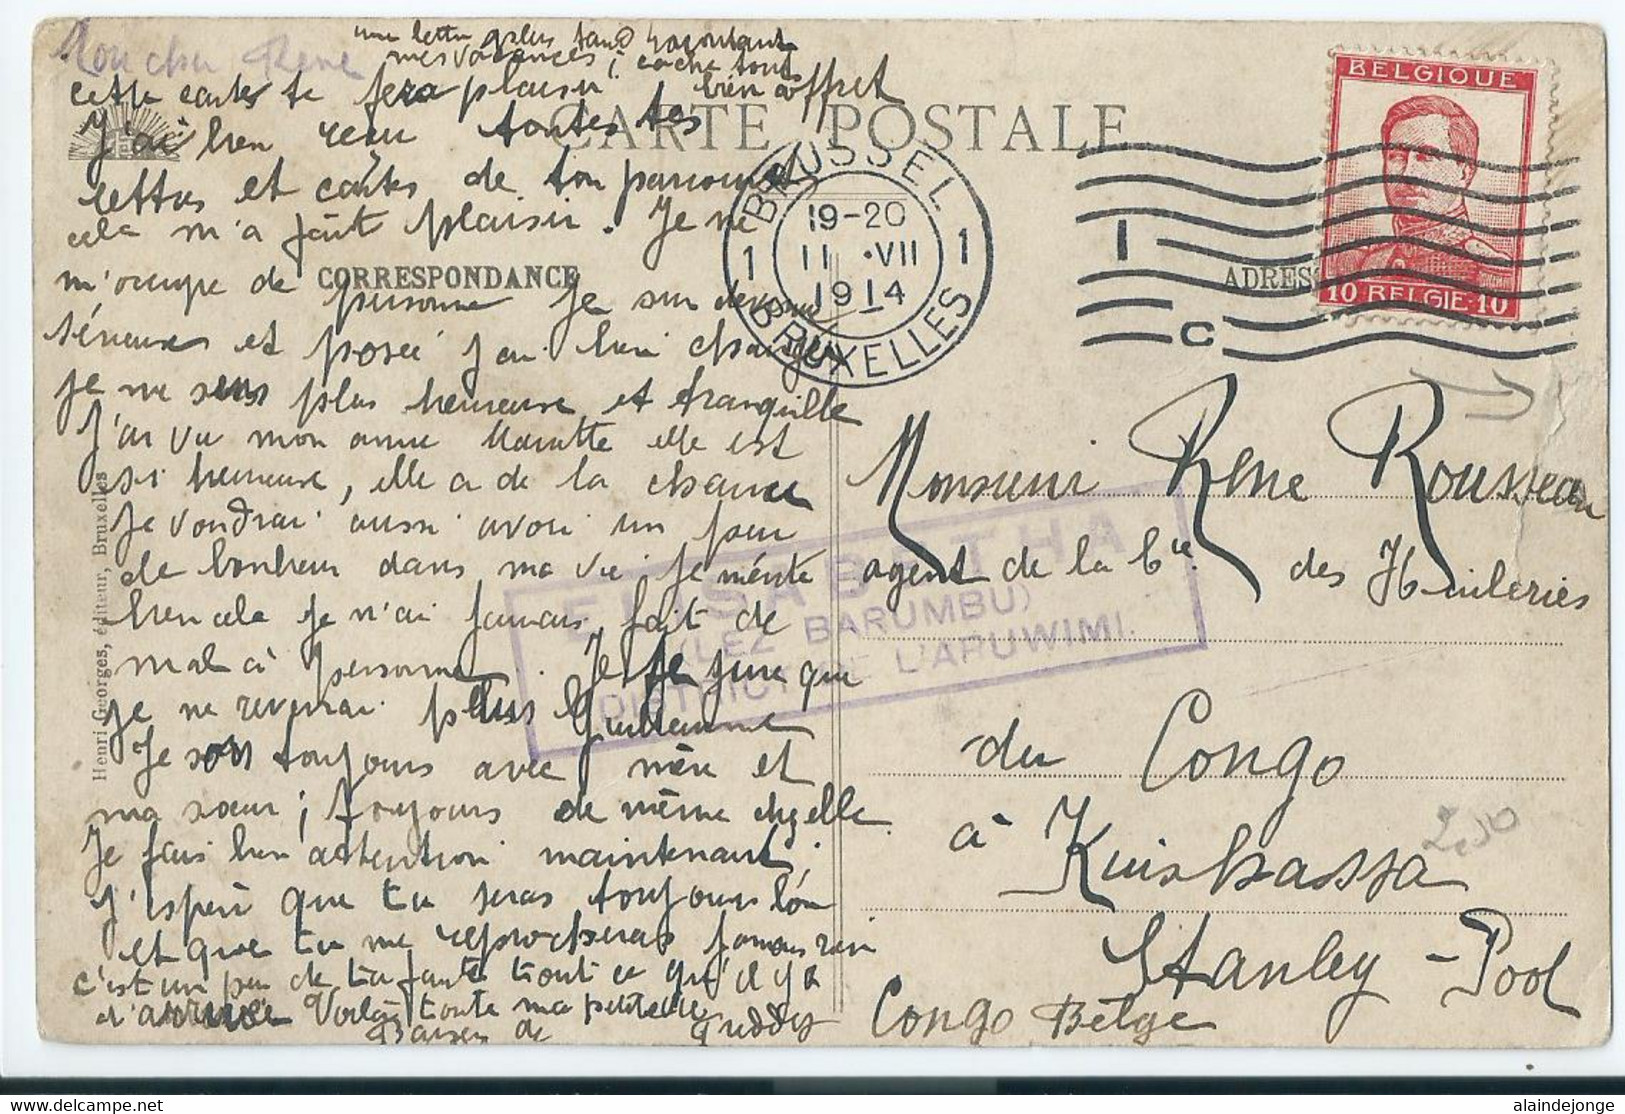 René
une lettre plus tard racontant
mes vacances; cache tout
cette carte te fera plaisir bien
CARTE POSTALE
J'ai bien reçu toutes tes
lettres et cartes de ton parcours
cela m'a fait plaisir. Je ne
m'occupe de personne je suis devenue
CORRESPONDANCE
ADRES
sérieuse et posée j'ai bien changé
je me sens plus heureuse et tranquille
J'ai vu mon amie elle est
si heureuse, elle a de la chance
je voudrai aussi avoir un peu
de bonheur dans ma vie je mérite
bien cela je n'ai jamais fait de
mal à personne. Je te jure que
je ne reverrai plus Guillaume
Je sors toujours avec mère et
ma sœur; toujours de même chez elle.
Je fais bien attention maintenant;
j'espère que tu seras toujours bon
et que tu me reprocheras jamais rien
c'est un peu de ta faute tout ce qu'il y a
Voilà toute ma petite
Baisers de Freddy
Henri Georges, éditeur, Bruxelles
BELGIQUE
10 BELGIE 10
BRUSSEL
1 19-20 1
11 VII
1914
BRUXELLES
1
C
Monsieur René Rousseau
agent de la Cie des Huileries
du Congo
à Kinshassa
Stanley-Pool
Congo Belge
ELISABETHA
(LEZ BARUMBU)
DISTRICT DE L'ARUWIMI.
2,50
alaindejonge